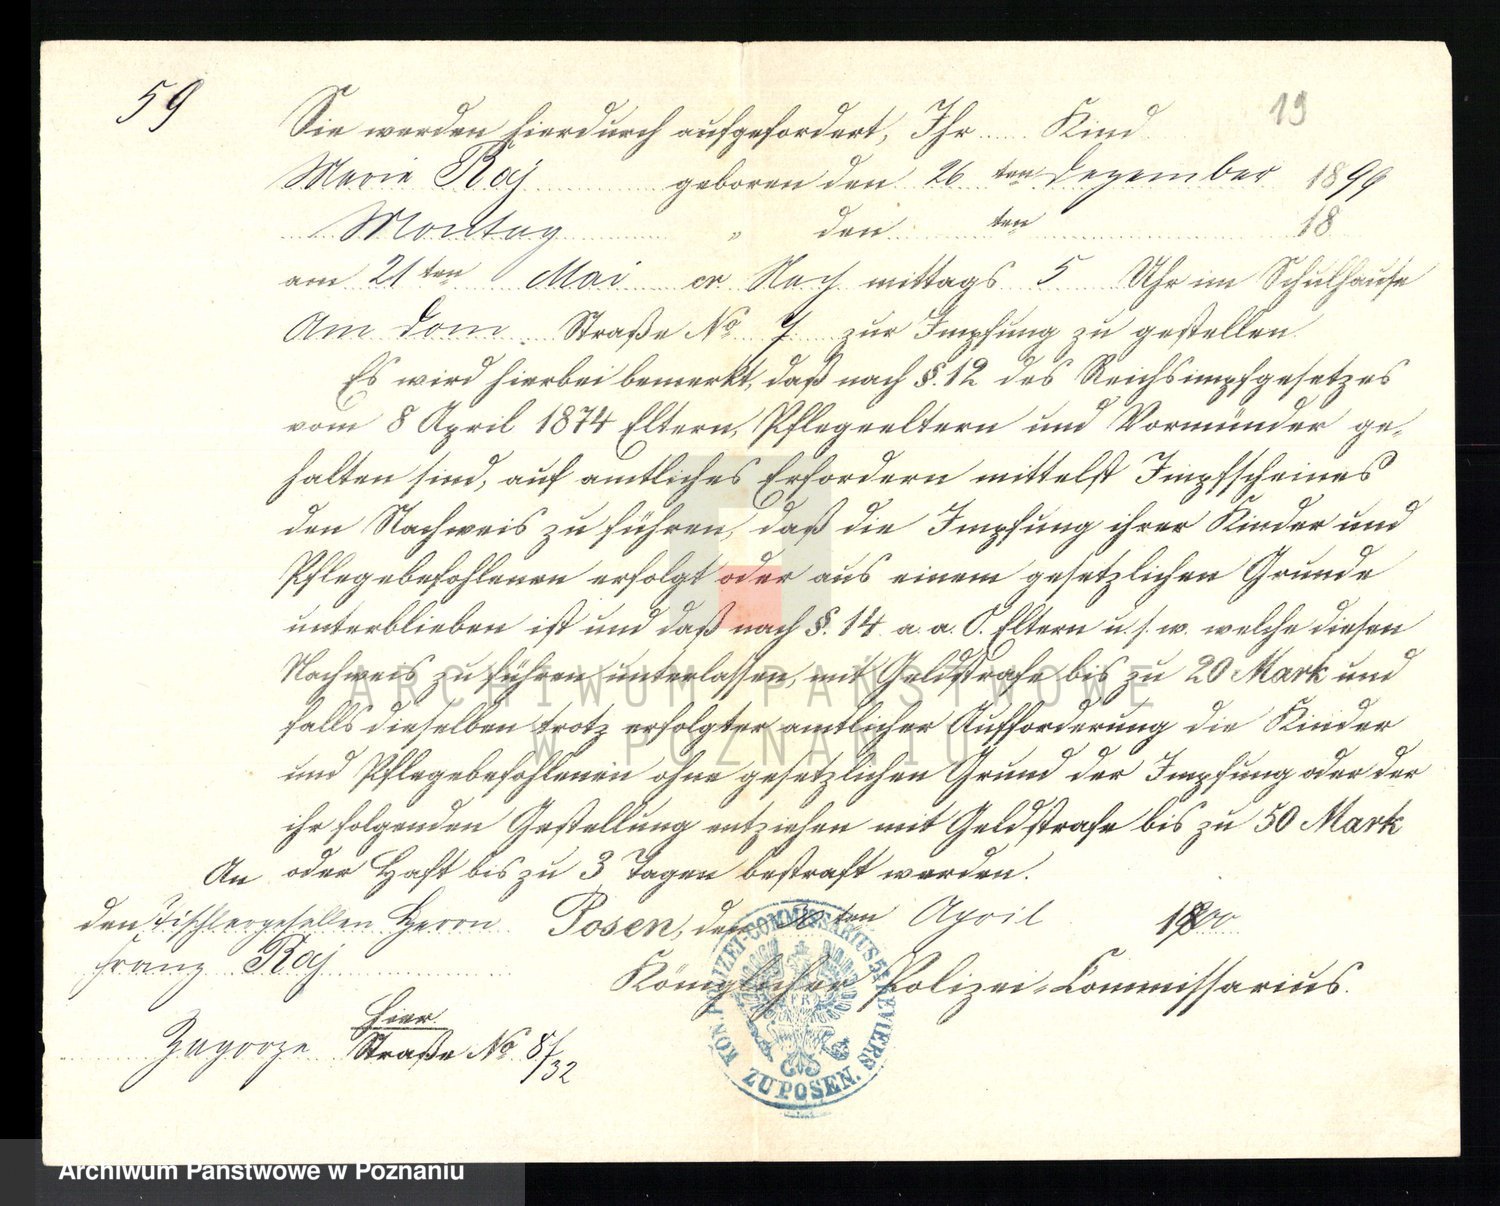 59
19
Sie werden hierdurch aufgefordert, Ihr Kind
Marie Raj geboren den 26 ten Dezember 1899
Montag " den ten 18
am 21 ten Mai cr Nach mittags 5 Uhr im Schulhause
Am Dom Straße No 7 zur Impfung zu gestellen.
Es wird hierbei bemerkt, daß nach §. 12 des Reichsimpfgesetzes
vom 8 April 1874 Eltern, Pflegeeltern und Vormünder ge-
halten sind, auf amtliches Erfordern mittelst Impfscheines
den Nachweis zu führen, daß die Impfung ihrer Kinder und
Pflegebefohlenen erfolgt oder aus einem gesetzlichen Grunde
unterblieben ist und daß nach §. 14 a. a. O. Eltern u. s. w. welche diesen
Nachweis zu führen unterlassen, mit Geldstrafe bis zu 20 Mark und
falls dieselben trotz erfolgter amtlicher Aufforderung die Kinder
und Pflegebefohlenen ohne gesetzlichen Grund der Impfung oder der
ihr folgenden Gestellung entziehen mit Geldstrafe bis zu 50 Mark
oder Haft bis zu 3 Tagen bestraft werden.
An
den Tischlergesellen Herrn
Franz Raj
hier
Zagorze Straße No 8/32
Posen, den ten April 1900
Königlicher Polizei-Commissarius.
KÖN. POLIZEI-COMMISSARIUS 5. REVIERS
ZU POSEN.
ARCHIWUM PAŃSTWOWE
W POZNANIU
Archiwum Państwowe w Poznaniu